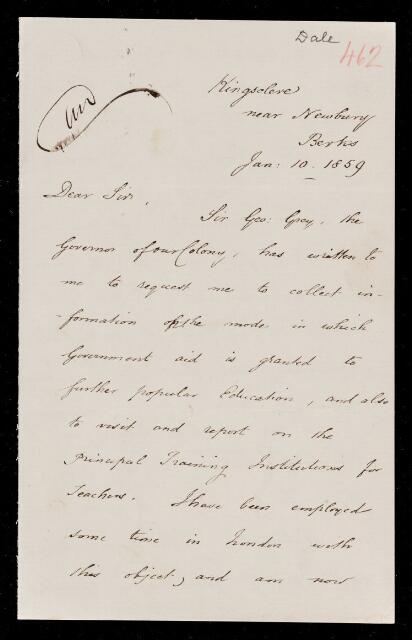 Dale
462
Kingsclere
near Newbury
Berks
Jan: 10. 1859
Dear Sir,
Sir Geo: Grey, the
Governor of our Colony, has written to
me to request me to collect in-
formation of the modes in which
Government aid is granted to
further popular Education, and also
to visit and report on the
Principal Training Institutions for
Teachers. I have been employed
some time in London with
this object, and am now